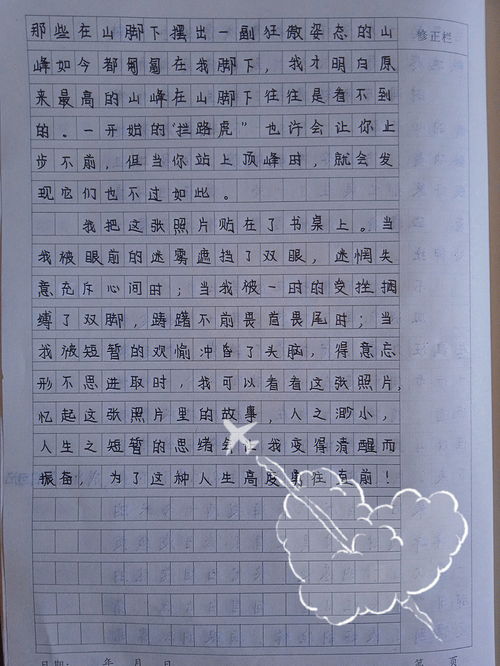 那些在山脚下摆出一副狂傲姿态的山
修正栏
峰如今都匍匐在我脚下，我才明白原
来最高的山峰在山脚下往往是看不到
的。一开始的“拦路虎”也许会让你止
步不前，但当你站上顶峰时，就会发
现它们也不过如此。
我把这张照片贴在了书桌上。当
我被眼前的迷雾遮挡了双眼，迷惘失
意充斥心间时；当我被一时的受挫捆
缚了双脚，踌躇不前畏首畏尾时；当
我被短暂的欢愉冲昏了头脑，得意忘
形不思进取时，我可以看看这张照片，
忆起这张照片里的故事，人之渺小，
人生之短暂的思绪会让我变得清醒而
振奋，为了这种人生高度勇往直前！
日期： 年 月 日
第 页